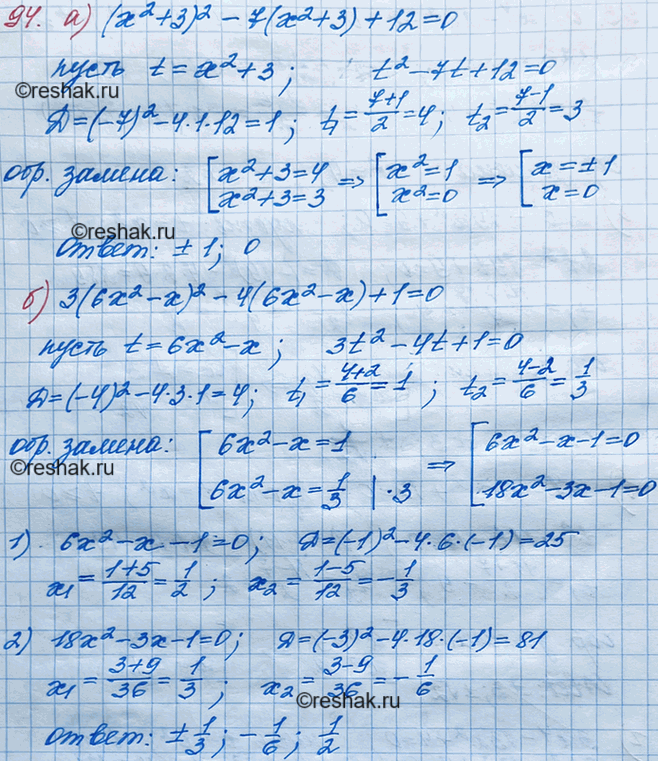 94. а) (x²+3)² - 7(x²+3) + 12 = 0
пусть t = x²+3; t² - 7t + 12 = 0
Д = (-7)² - 4·1·12 = 1; t₁ = (7+1)/2 = 4; t₂ = (7-1)/2 = 3
©reshak.ru
обр. замена: [x²+3=4 => [x²=1 => [x=±1
x²+3=3 x²=0 x=0
©reshak.ru
ответ: ±1; 0
б) 3(6x²-x)² - 4(6x²-x) + 1 = 0
©reshak.ru
пусть t = 6x²-x; 3t² - 4t + 1 = 0
Д = (-4)² - 4·3·1 = 4; t₁ = (4+2)/6 = 1; t₂ = (4-2)/6 = 1/3
обр. замена: [6x²-x=1 => [6x²-x-1=0
©reshak.ru
6x²-x=1/3 |·3 18x²-3x-1=0
1) 6x²-x-1=0; Д = (-1)² - 4·6·(-1) = 25
x₁ = (1+5)/12 = 1/2; x₂ = (1-5)/12 = -1/3
2) 18x²-3x-1=0; Д = (-3)² - 4·18·(-1) = 81
x₁ = (3+9)/36 = 1/3; x₂ = (3-9)/36 = -1/6
©reshak.ru
ответ: ±1/3; -1/6; 1/2